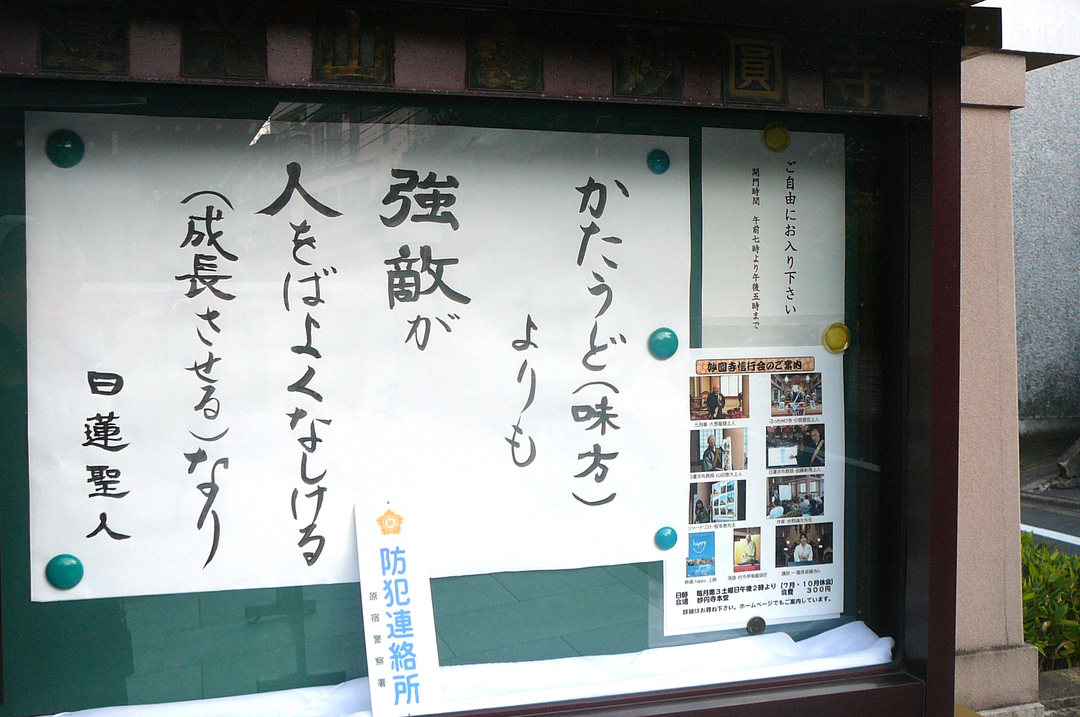 山
妙圓寺
かたうど（味方）
よりも
強敵が
人をばよくなしける
（成長させる）なり
日蓮聖人
ご自由にお入り下さい
開門時間 午前七時より午後五時まで
妙圓寺信行会のご案内
日時 毎月第3土曜日午後2時より (7月・10月休会)
会場 妙円寺本堂 会費 300円
詳細はお尋ね下さい。ホームページでもご案内しています。
防犯連絡所
原宿警察署